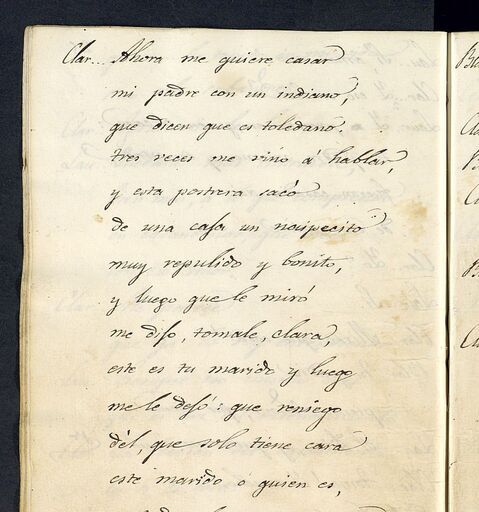 Clar... Ahora me quiere casar
mi padre con un indiano,
que dicen que es toledano:
tres veces me vino á hablar,
y esta postrera sacó
de una caja un naipecito
muy repulido y bonito,
y luego que le miró
me dijo, tomale, clara,
este es tu marido y luego
me le dejó: que reniego
dél, que solo tiene cara
este marido ó quien es,